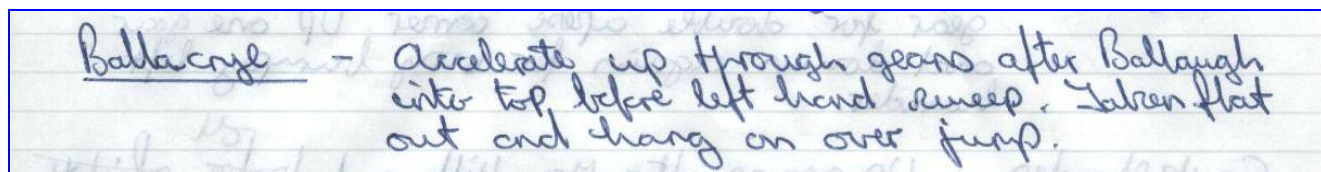 Ballacrye - Accelerate up through gears after Ballaugh
into top before left hand sweep. Taken flat
out and hang on over jump.